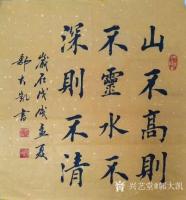 山不高則
不靈水不
深則不清
歲在戊戌孟夏
郭大凱書
兴艺堂@郭大凯